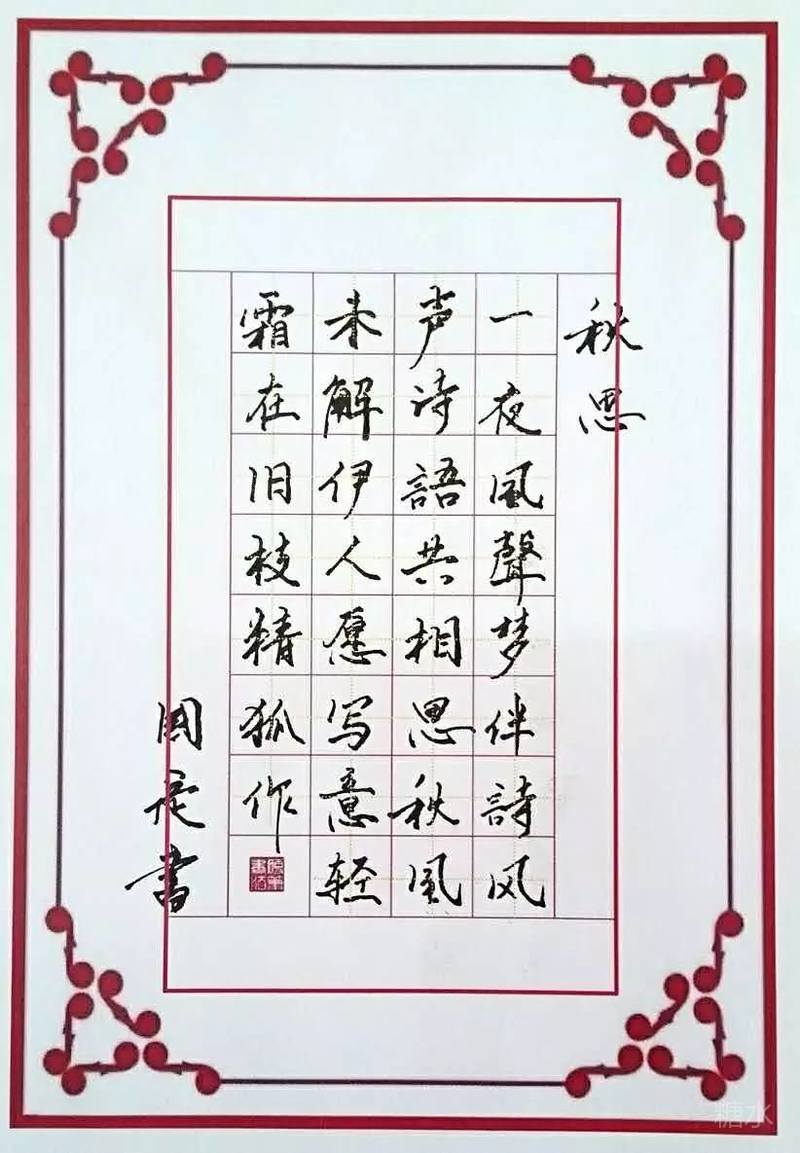 秋思
一夜風聲梦伴詩风
声诗語共相思秋風
未解伊人愿写意轻
霜在旧枝精狐作
國庆書
糖水